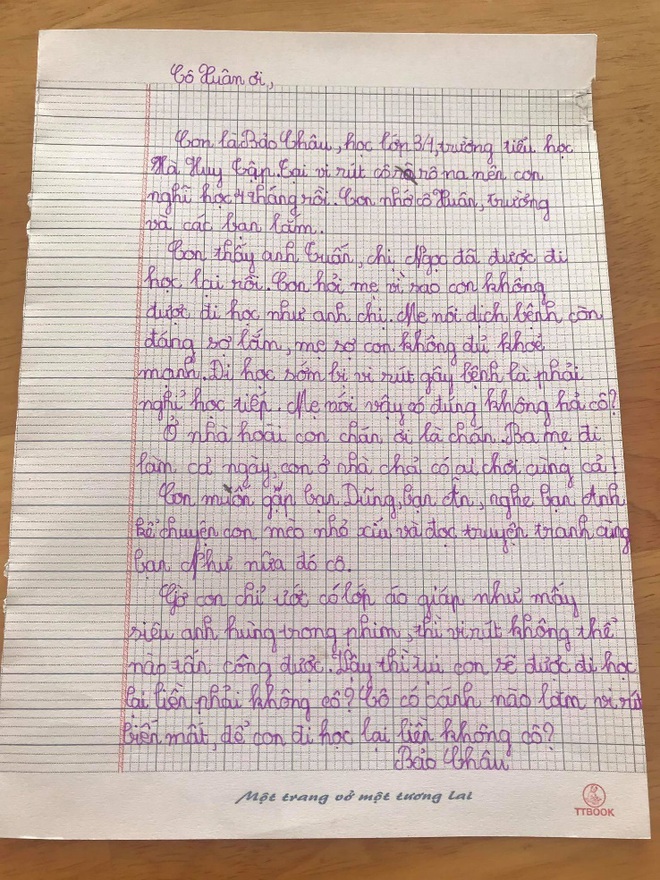 Cô Xuân ơi,
Con là Bảo Châu, học lớn 3/1, trường tiểu học
Hà Huy Tập. Tại vi rút cô rô na nên con
nghỉ học 4 tháng rồi. Con nhớ cô Xuân, trường
và các bạn lắm.
Con thấy anh Tuấn, chị Ngọc đã được đi
học lại rồi. Con hỏi mẹ vì sao con không
được đi học như anh chị. Mẹ nói dịch bệnh còn
đáng sợ lắm, mẹ sợ con không đủ khoẻ
mạnh. Đi học sớm bị vi rút gây bệnh là phải
nghỉ học tiếp. Mẹ nói vậy có đúng không hả cô?
Ở nhà hoài con chán ơi là chán. Ba mẹ đi
làm cả ngày, con ở nhà chả có ai chơi cùng cả!
Con muốn gặp bạn Dũng, bạn Ân, nghe bạn Anh
kể chuyện con mèo nhỏ xíu và đọc truyện tranh cùng
bạn Như nữa đó cô.
Giờ con chỉ ước có lớp áo giáp như mấy
siêu anh hùng trong phim, thì vi rút không thể
nào tấn công được. Vậy thì tụi con sẽ được đi học
lại liền phải không cô? Cô có cánh nào làm vi rút
biến mất, để con đi học lại liền không cô?
Bảo Châu
Một trang vở một tương lai
TTBOOK